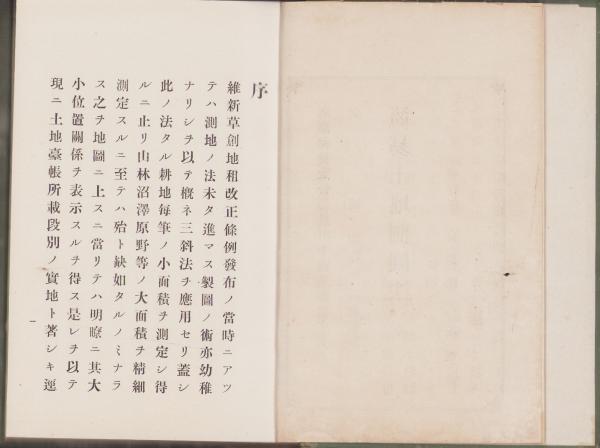 序
維新草創地租改正條例發布ノ當時ニアツ
テハ測地ノ法未タ進マス製圖ノ術亦幼稚
ナリシヲ以テ槪ネ三斜法ヲ應用セリ蓋シ
此ノ法タル耕地每筆ノ小面積ヲ測定シ得
ルニ止リ山林沼澤原野等ノ大面積ヲ精細
測定スルニ至テハ殆ト缺如タルノミナラ
ス之ヲ地圖ニ上スニ當リテハ明瞭ニ其大
小位置關係ヲ表示スルヲ得ス是レヲ以テ
現ニ土地臺帳所載段別ノ實地ト著シキ逕
一